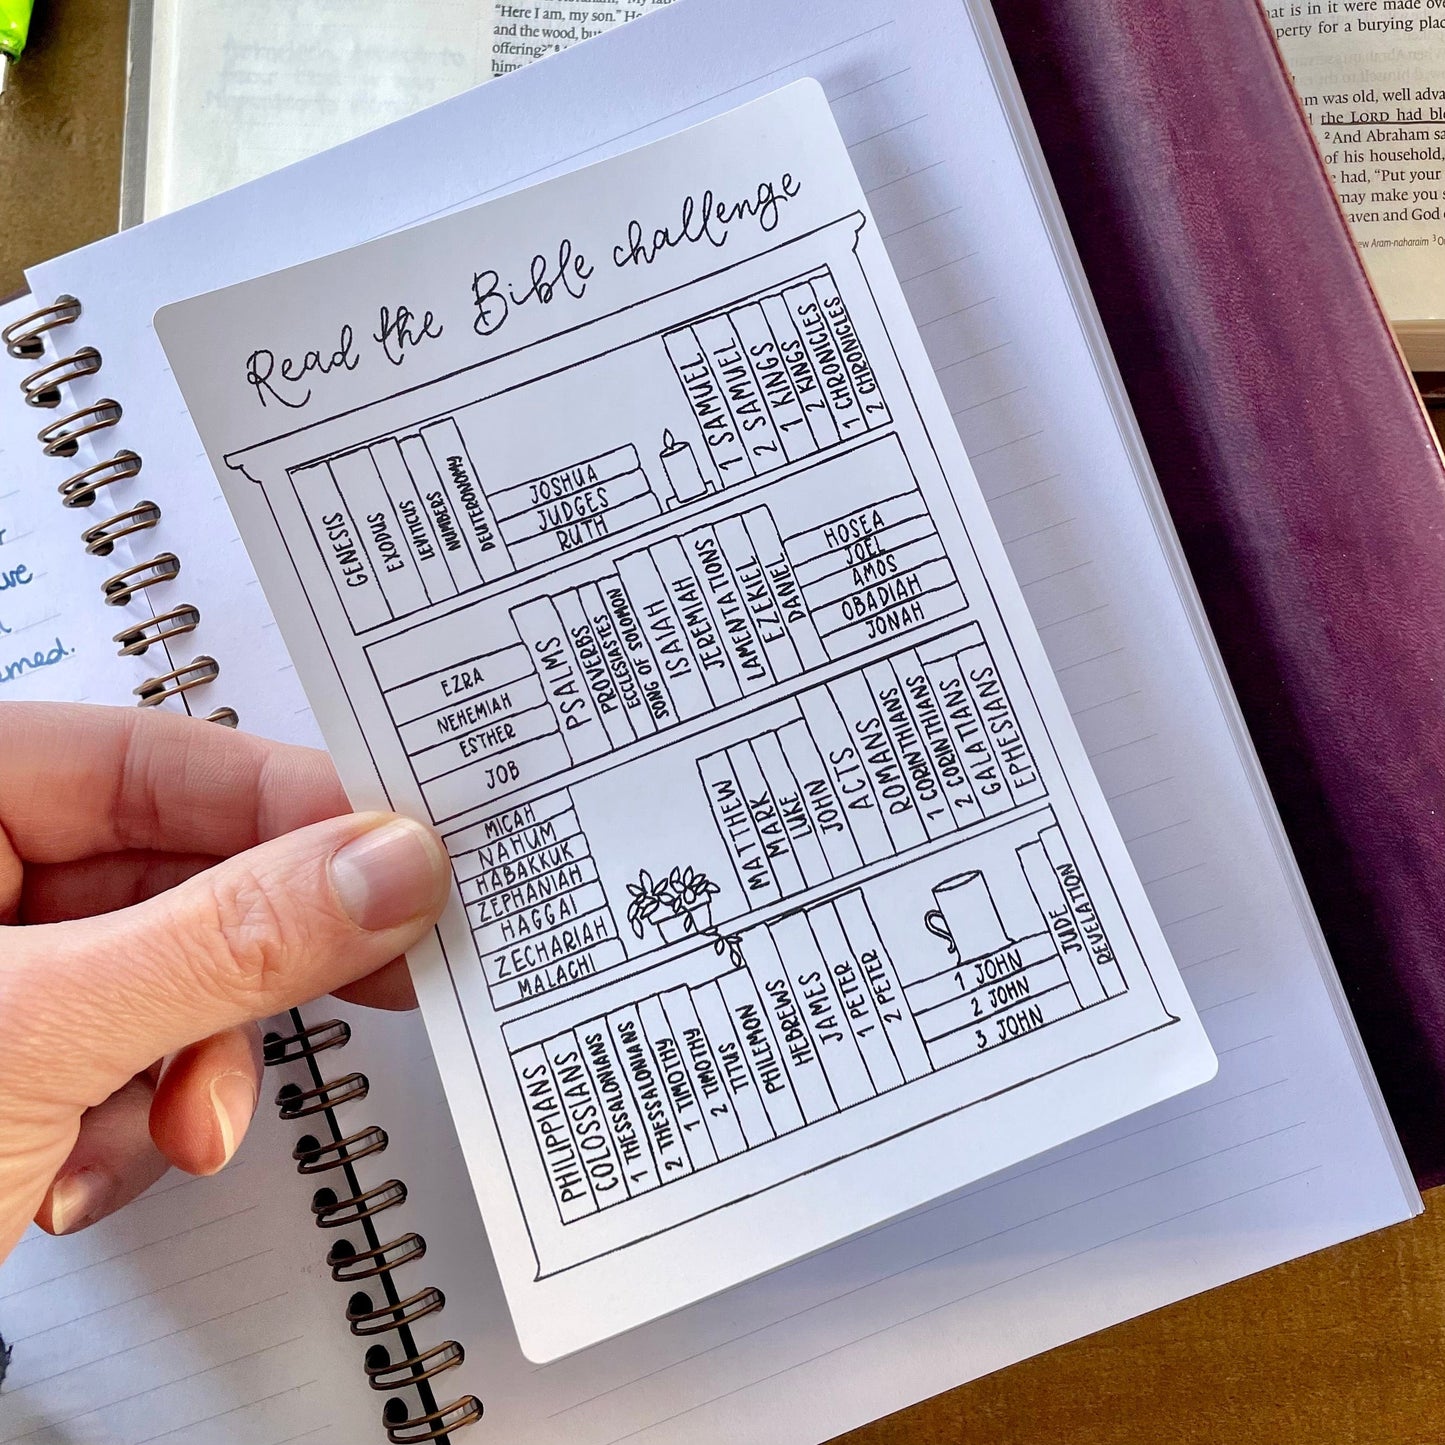 "Here I am, my son." He
and the wood, but
offering?" 8
him
Read the Bible challenge
GENESIS
EXODUS
LEVITICUS
NUMBERS
DEUTERONOMY
JOSHUA
JUDGES
RUTH
1 SAMUEL
2 SAMUEL
1 KINGS
2 KINGS
1 CHRONICLES
2 CHRONICLES
EZRA
NEHEMIAH
ESTHER
JOB
PSALMS
PROVERBS
ECCLESIASTES
SONG OF SOLOMON
ISAIAH
JEREMIAH
LAMENTATIONS
EZEKIEL
DANIEL
HOSEA
JOEL
AMOS
OBADIAH
JONAH
MICAH
NAHUM
HABAKKUK
ZEPHANIAH
HAGGAI
ZECHARIAH
MALACHI
MATTHEW
MARK
LUKE
JOHN
ACTS
ROMANS
1 CORINTHIANS
2 CORINTHIANS
GALATIANS
EPHESIANS
PHILIPPIANS
COLOSSIANS
1 THESSALONIANS
2 THESSALONIANS
1 TIMOTHY
2 TIMOTHY
TITUS
PHILEMON
HEBREWS
JAMES
1 PETER
2 PETER
1 JOHN
2 JOHN
3 JOHN
JUDE
REVELATION
that is in it were made ove
perty for a burying plac
m was old, well adva
the LORD had ble
2 And Abraham sa
of his household,
had, "Put your
may make you s
aven and God
ew Aram-naharaim 3 O